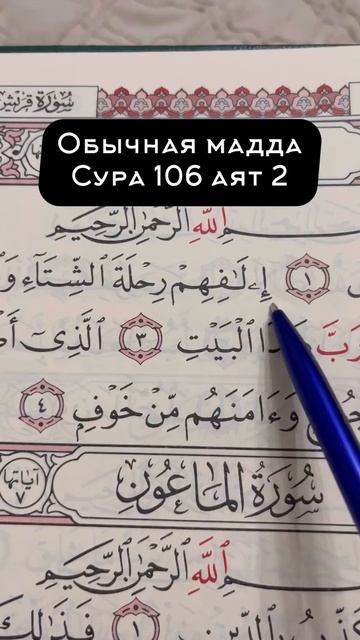 سُورَةُ قُرَيْشٍ
Обычная мадда
Сура 106 аят 2
ٱللَّهِ ٱلرَّحْمَٰنِ ٱلرَّحِيمِ
١ إِۦلَٰفِهِمْ رِحْلَةَ ٱلشِّتَآءِ
رَبَّ ٱلْبَيْتِ ٣ ٱلَّذِىٓ
وَءَامَنَهُم مِّنْ خَوْفٍ ٤
سُورَةُ المَاعُونِ
آيَاتُهَا ٧
ٱللَّهِ ٱلرَّحْمَٰنِ ٱلرَّحِيمِ
١ فَذَٰلِكَ